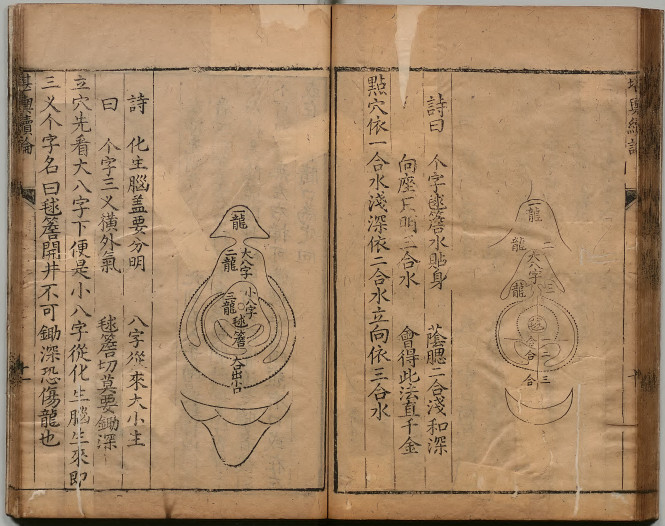 詩曰 个字毬簷水貼身 蔭腮二合淺和深
向座 明三合水 會得此法直千金
點穴依一合水淺深依二合水立向依三合水
一龍
二龍
大八字
三龍
毬
合
合
二
合三
堪輿續論
詩曰 化生腦盖要分明 八字從來大小生
个字三义橫外氣 毬簷切莫要鋤深
立穴先看大八字下便是小八字從化生腦生來即
三义个字名曰毬簷開井不可鋤深恐傷龍也
一龍
大八字
二龍
小八字
三龍
毬簷
堪輿續論
十一